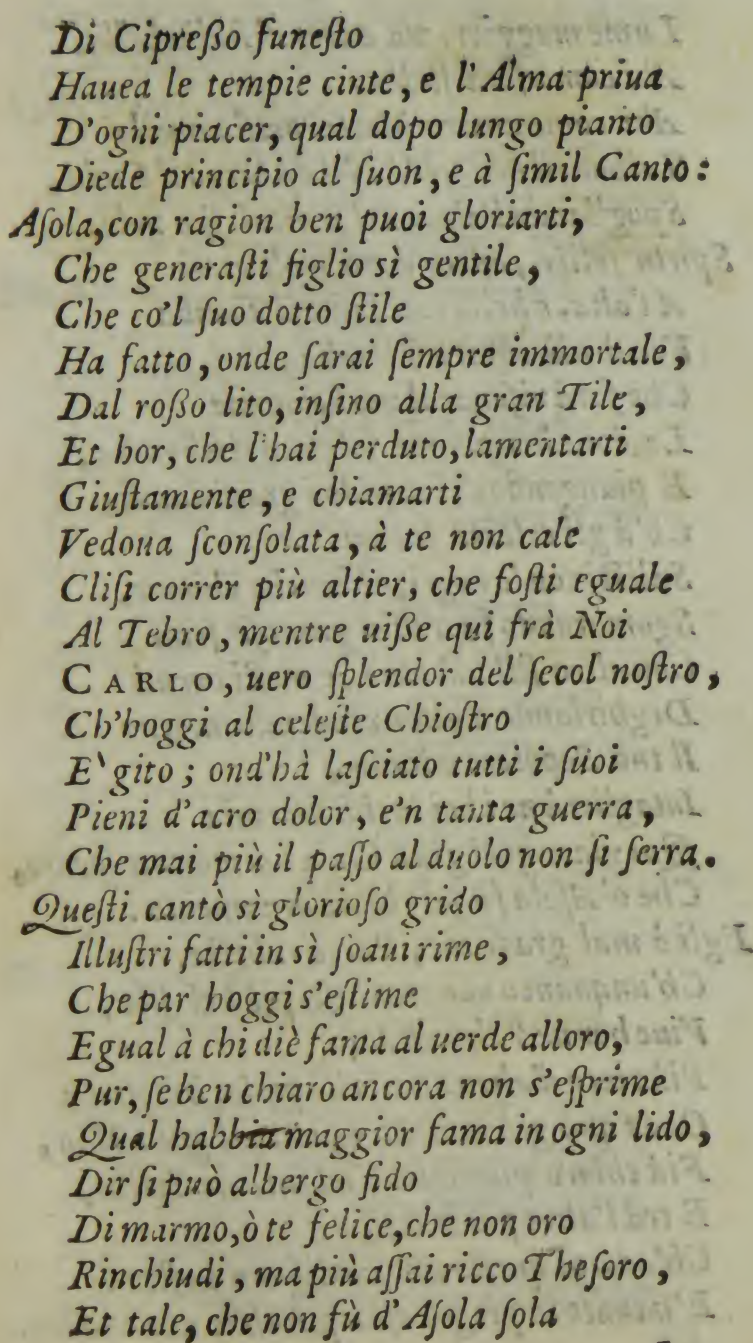 Di Cipreßo funeſto
Hauea le tempie cinte, e l'Alma priua
D'ogni piacer, qual dopo lungo pianto
Diede principio al ſuon, e à ſimil Canto:
Aſola, con ragion ben puoi gloriarti,
Che generaſti figlio sì gentile,
Che co'l ſuo dotto ſtile
Ha fatto, onde ſarai ſempre immortale,
Dal roßo lito, inſino alla gran Tile,
Et hor, che l'hai perduto, lamentarti
Giuſtamente, e chiamarti
Vedoua ſconſolata, à te non cale
Cliſi correr più altier, che foſti eguale
Al Tebro, mentre uiße qui frà Noi
CARLO, uero ſplendor del ſecol noſtro,
Ch'hoggi al celeſte Chioſtro
E' gito; ond'hà laſciato tutti i ſuoi
Pieni d'acro dolor, e'n tanta guerra,
Che mai più il paſſo al duolo non ſi ſerra.
Queſti cantò sì glorioſo grido
Illuſtri fatti in sì ſoaui rime,
Che par hoggi s'eſtime
Egual à chi diè fama al uerde alloro,
Pur, ſe ben chiaro ancora non s'eſprime
Qual habbia maggior fama in ogni lido,
Dir ſi può albergo fido
Di marmo, ò te felice, che non oro
Rinchiudi, ma più aſſai ricco Theſoro,
Et tale, che non fù d'Aſola ſola